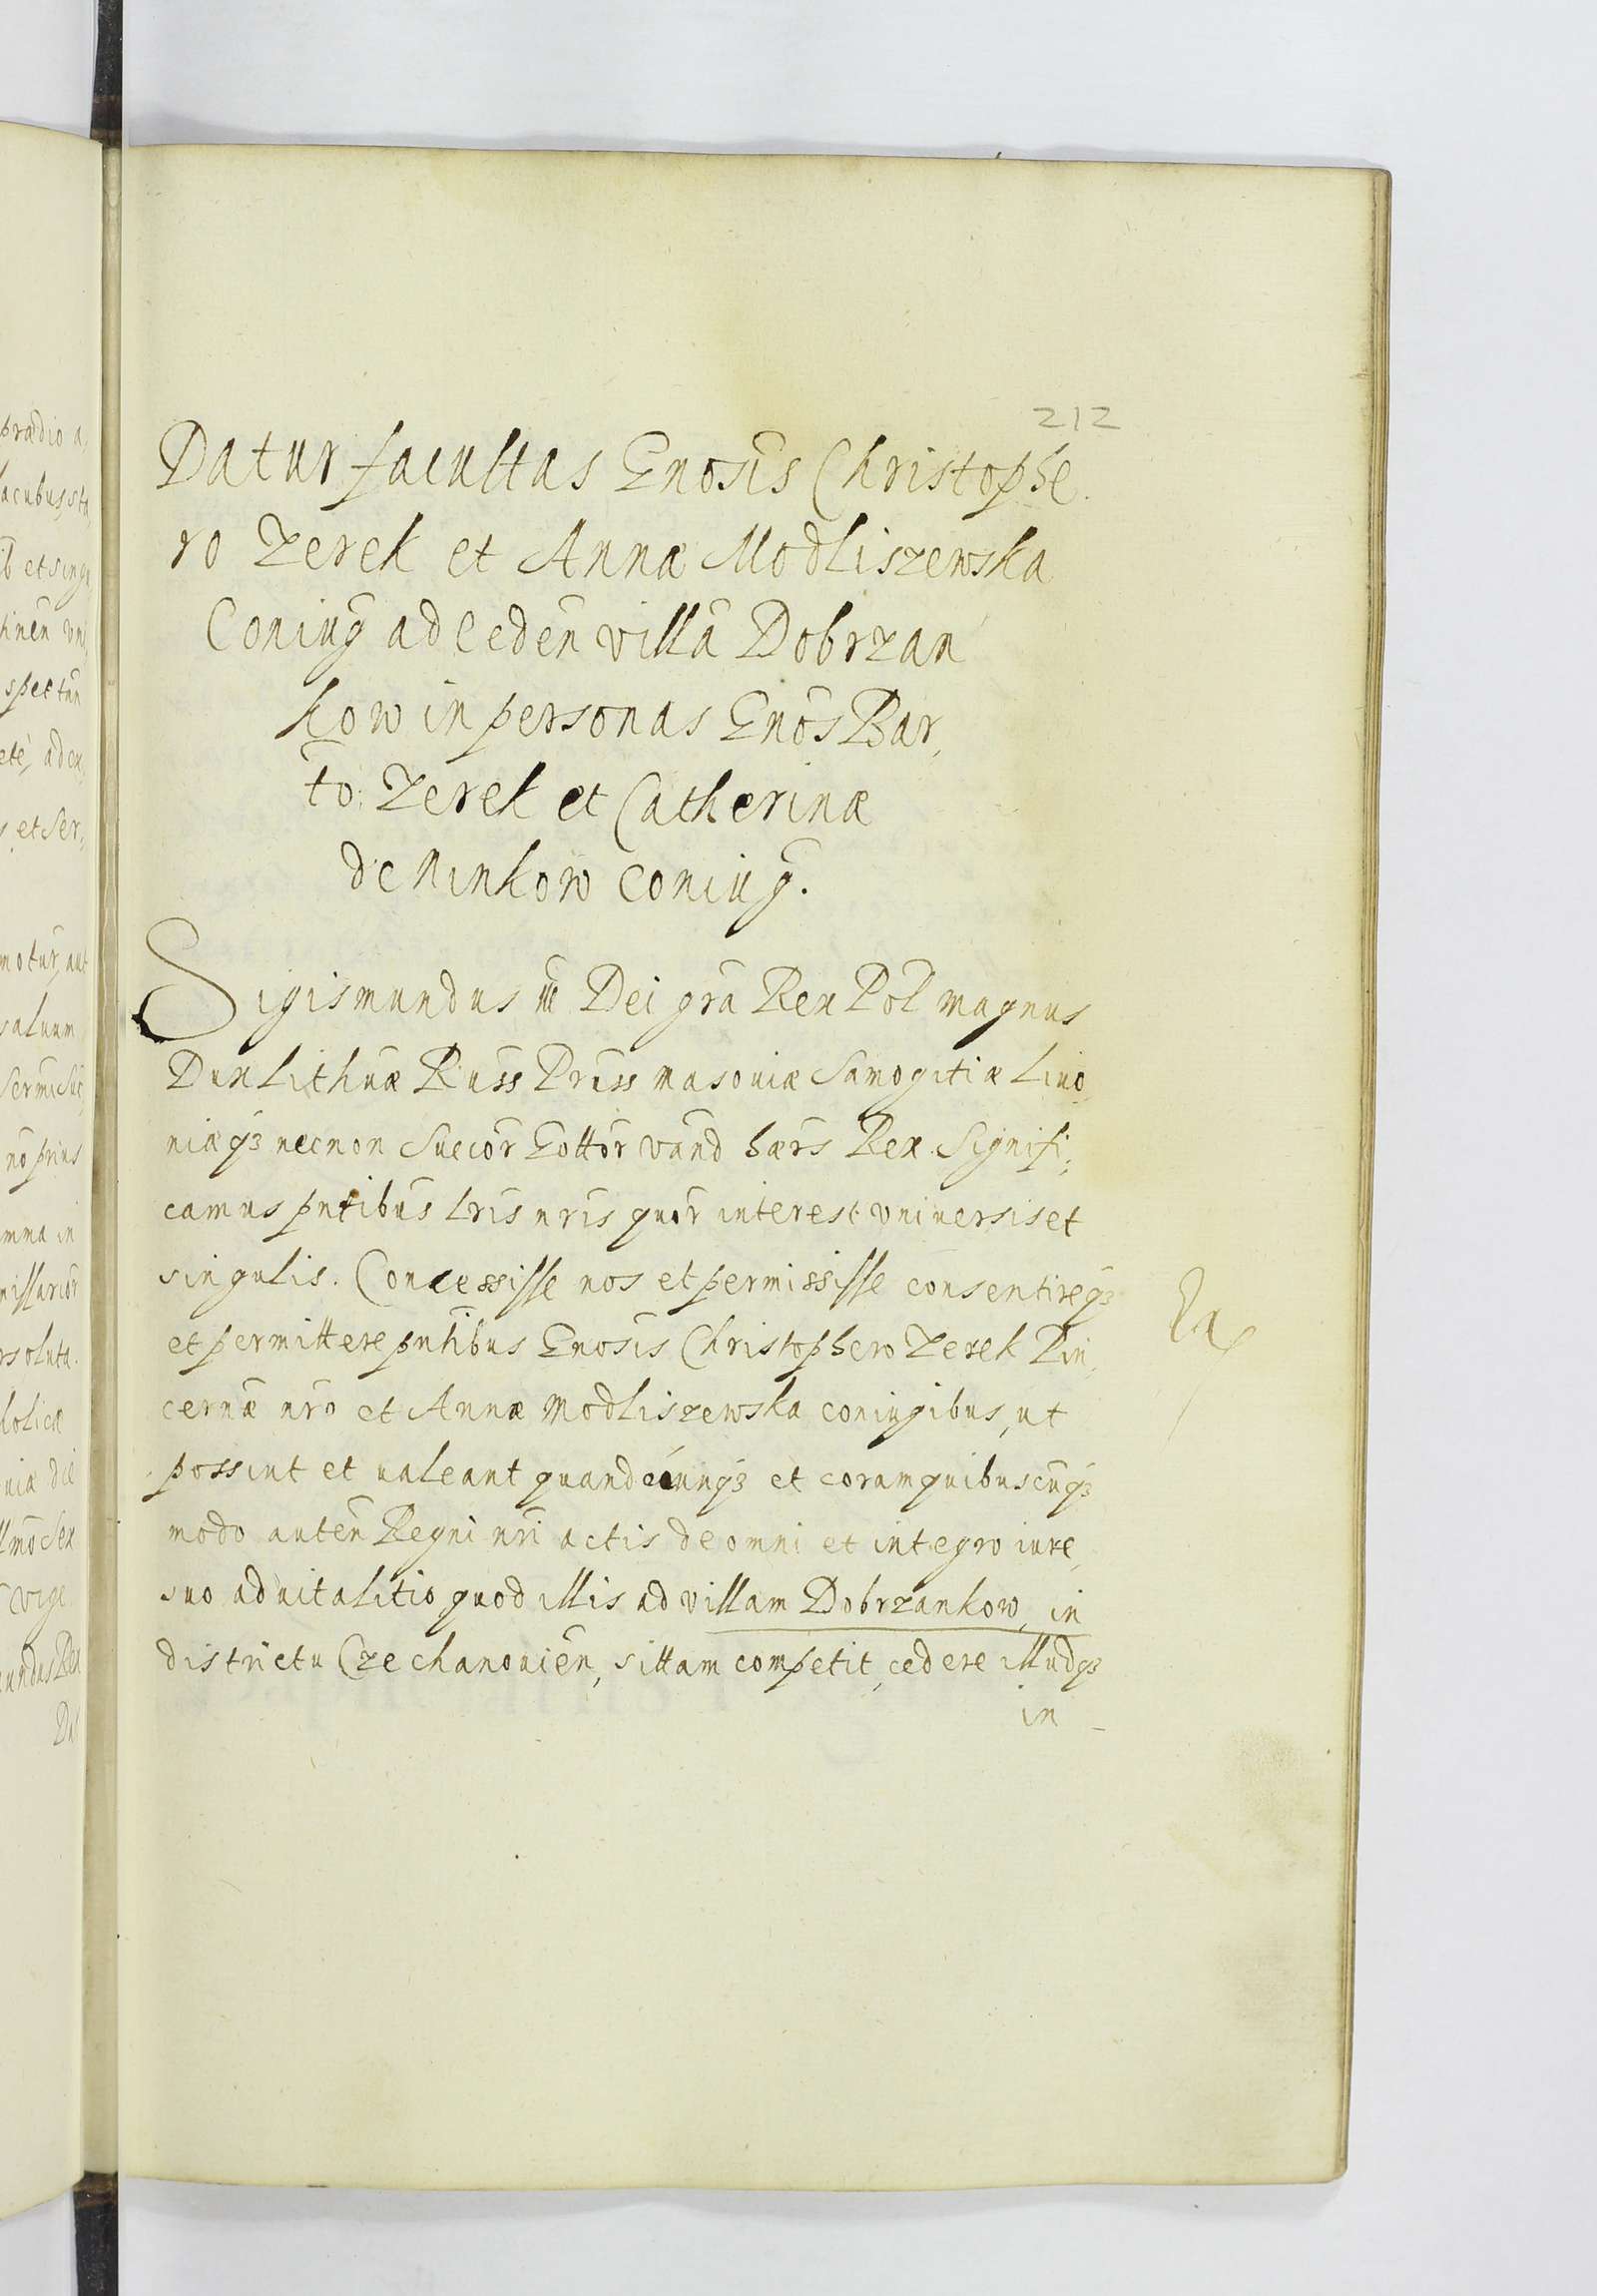 212
Datur facultas Gnosis Christophe
ro Zerek et Annæ Modliszewska
Coniug̃ ad cedeñ villã Dobrzan
kow in personas Gnõs Bar,
to: Zerek et Catherinæ
de Ninkow coniug̃.
Sigismundus iii Dei grã Rex Pol̃ magnus
Dux Lithuæ Russ̃ Pruss̃ masoviæ Samogitiæ Livo,
niæqȝ necnon Suecor̃ Gottor̃ vand̃ hærs̃ Rex. Signifi,
camus pn̄tibus lr̄is nr̄is quor̃ interest universis et
singulis. Concessisse nos et permississe consentireqȝ
et permittere pn̄tibus Gnosis Christophero Zerek Pin,
cernæ nr̄o et Annæ Modliszewska coniugibus, ut
possint et ualeant quandocunqȝ et coram quibuscũqȝ
modo auteñ Regni nr̄i actis de omni et integro iure,
suo aduitalitio quod illis ad villam Dobrzankow, in
districtu Czechanouieñ, sittam competit, cedere illudqȝ
in
prædio a,
lacubus, sta
spectañ
et Ser,
motur, aut
saluum
no prius
mna in
rsoluta.
holicæ
uiæ die
vige
undus Rex
Da